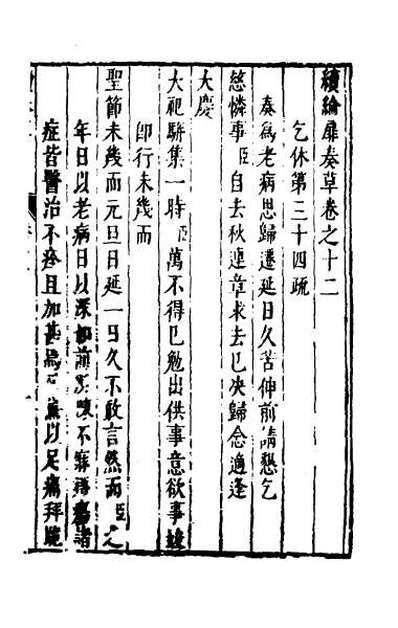 續綸扉奏草卷之十二
乞休第三十四疏
奏爲老病思歸遷延日久苦伸前請懇乞
慈憐事臣自去秋連章求去已决歸念適逢
大慶
大祀駢集一時臣萬不得已勉出供事意欲事竣
卽行未幾而
聖節未幾而元旦日延一日久不敢言然而臣之
年日以老病日以深如前痰嗽不寐諸
症皆醫治不痊且加甚焉以足痛拜跪